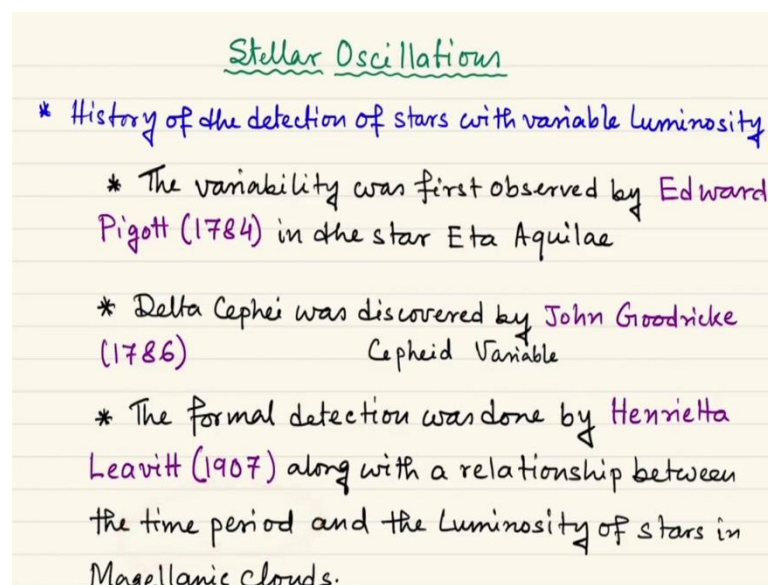 Stellar Oscillations
* History of the detection of stars with variable Luminosity
* The variability was first observed by Edward
Pigott (1784) in the star Eta Aquilae
* Delta Cephei was discovered by John Goodricke
(1786) Cepheid Variable
* The formal detection was done by Henrietta
Leavitt (1907) along with a relationship between
the time period and the Luminosity of stars in
Magellanic Clouds.